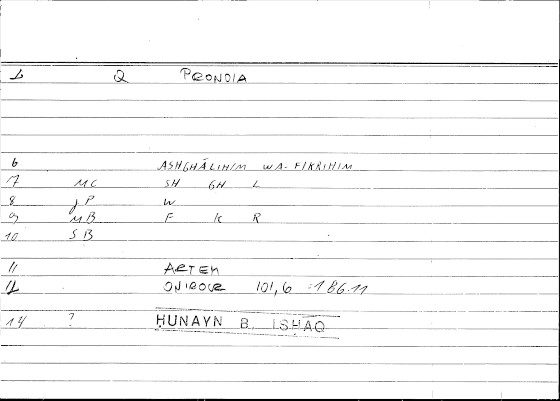 1 Q PRONOIA
6 ASHGHĀLIHIM WA-FIKRIHIM
7 MC SH GH L
8 JP W
9 MB F K R
10 SB
11 ARTEM
12 ONIROCR 101,6 :186.11
14 ? ḤUNAYN B. ISḤĀQ